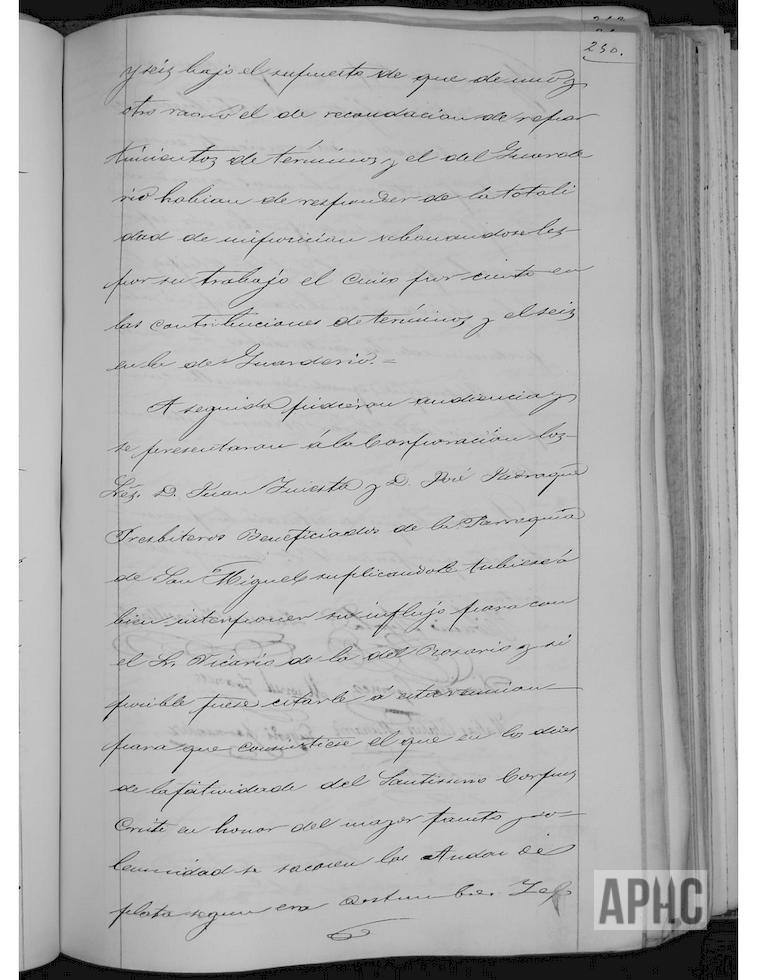 230.
y seis bajo el supuesto de que de uno y
otro ramo el de recaudacion de repar
timientos de términos y el del Guarde
rio habian de responder de la totali
dad de imposicion abonandoseles
por su trabajo el cinco por ciento en
las contribuciones de términos y el seis
en la de Guarderio.=
A seguida pidieron audiencia y
se presentaron á la Corporación los
Sres. D. Juan Iniesta y D. José
Presbiteros Beneficiados de la Parroquia
de San Miguel suplicandole tubiese á
bien interponer su influjo para con
el Sr. Vicario de la del Rosario y si
posible fuese citarle á esta reunion
para que consintiese el que en los dias
de la festividad del Santisimo Corpus
Cristi en honor del mayor fausto y so-
lemnidad se sacasen las Andas de
plata segun era costumbre.
APHC